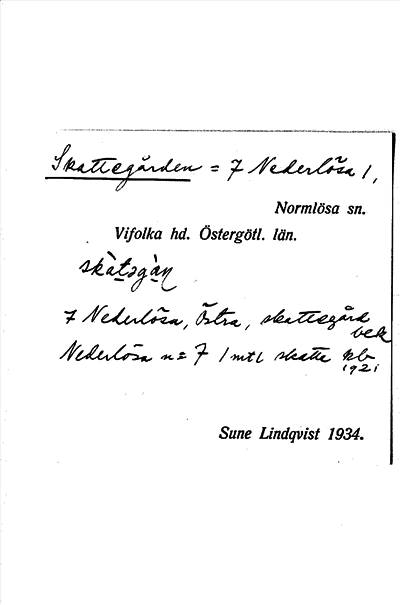 Skattegården = 7 Nederlösa 1,
Normlösa sn.
Vifolka hd. Östergötl. län.
skàtəgàṇ
7 Nederlösa, Östra, skattegård
bek
Nederlösa n= 7 1 mtl skatte kb
1921
Sune Lindqvist 1934.